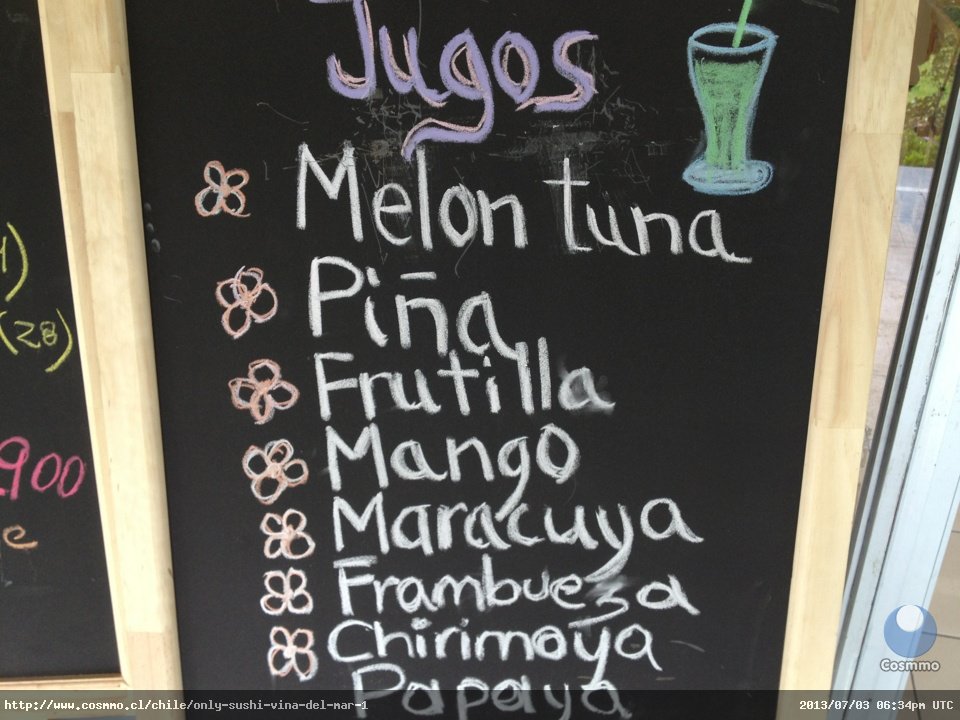 Jugos
Melon tuna
Piña
Frutilla
Mango
Maracuya
Frambueza
Chirimoya
Papaya
(28)
900
e
Cosmmo
http://www.cosmmo.cl/chile/only-sushi-vina-del-mar-1
2013/07/03 06:34pm UTC